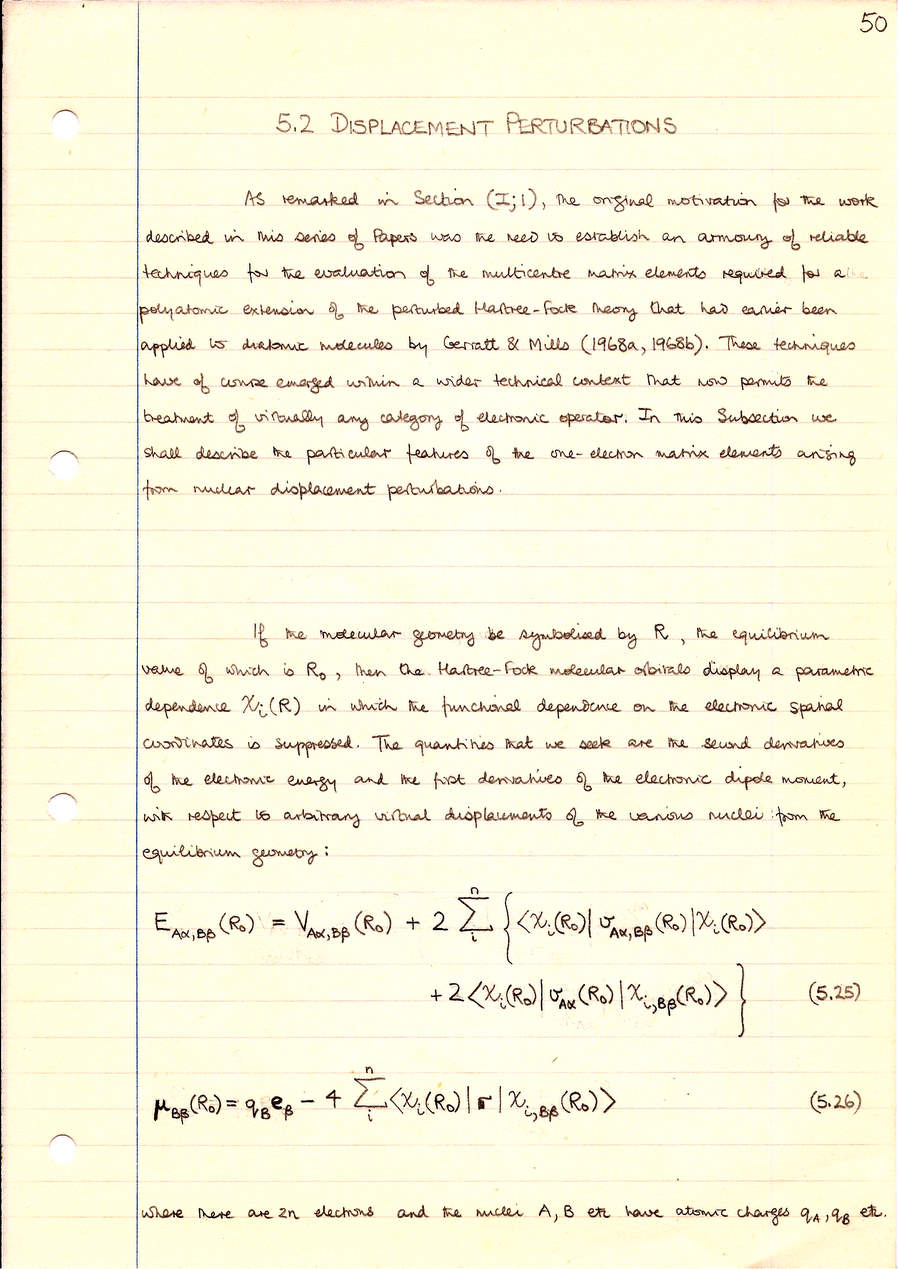 50
5.2 DISPLACEMENT PERTURBATIONS
As remarked in Section (I;1), the original motivation for the work
described in this series of Papers was the need to establish an armoury of reliable
techniques for the evaluation of the multicentre matrix elements required for a
polyatomic extension of the perturbed Hartree-Fock theory that had earlier been
applied to diatomic molecules by Gerratt & Mills (1968a, 1968b). These techniques
have of course emerged within a wider technical context that now permits the
treatment of virtually any category of electronic operator. In this Subsection we
shall describe the particular features of the one-electron matrix elements arising
from nuclear displacement perturbations.
If the molecular geometry be symbolised by R, the equilibrium
value of which is R₀, then the Hartree-Fock molecular orbitals display a parametric
dependence χᵢ(R) in which the functional dependence on the electronic spatial
coordinates is suppressed. The quantities that we seek are the second derivatives
of the electronic energy and the first derivatives of the electronic dipole moment,
with respect to arbitrary virtual displacements of the various nuclei from the
equilibrium geometry:
E_{Aα,Bβ}(R₀) = V_{Aα,Bβ}(R₀) + 2 Σᵢⁿ { ⟨χᵢ(R₀)| υ_{Aα,Bβ}(R₀) |χᵢ(R₀)⟩
+ 2⟨χᵢ(R₀)| υ_{Aα}(R₀) | χ_{i,Bβ}(R₀)⟩ } (5.25)
μ_{Bβ}(R₀) = q_B e_β − 4 Σᵢⁿ ⟨χᵢ(R₀)| r | χ_{i,Bβ}(R₀)⟩ (5.26)
where there are 2n electrons and the nuclei A, B etc have atomic charges q_A, q_B etc.